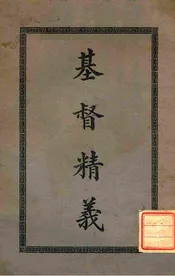 基督精義